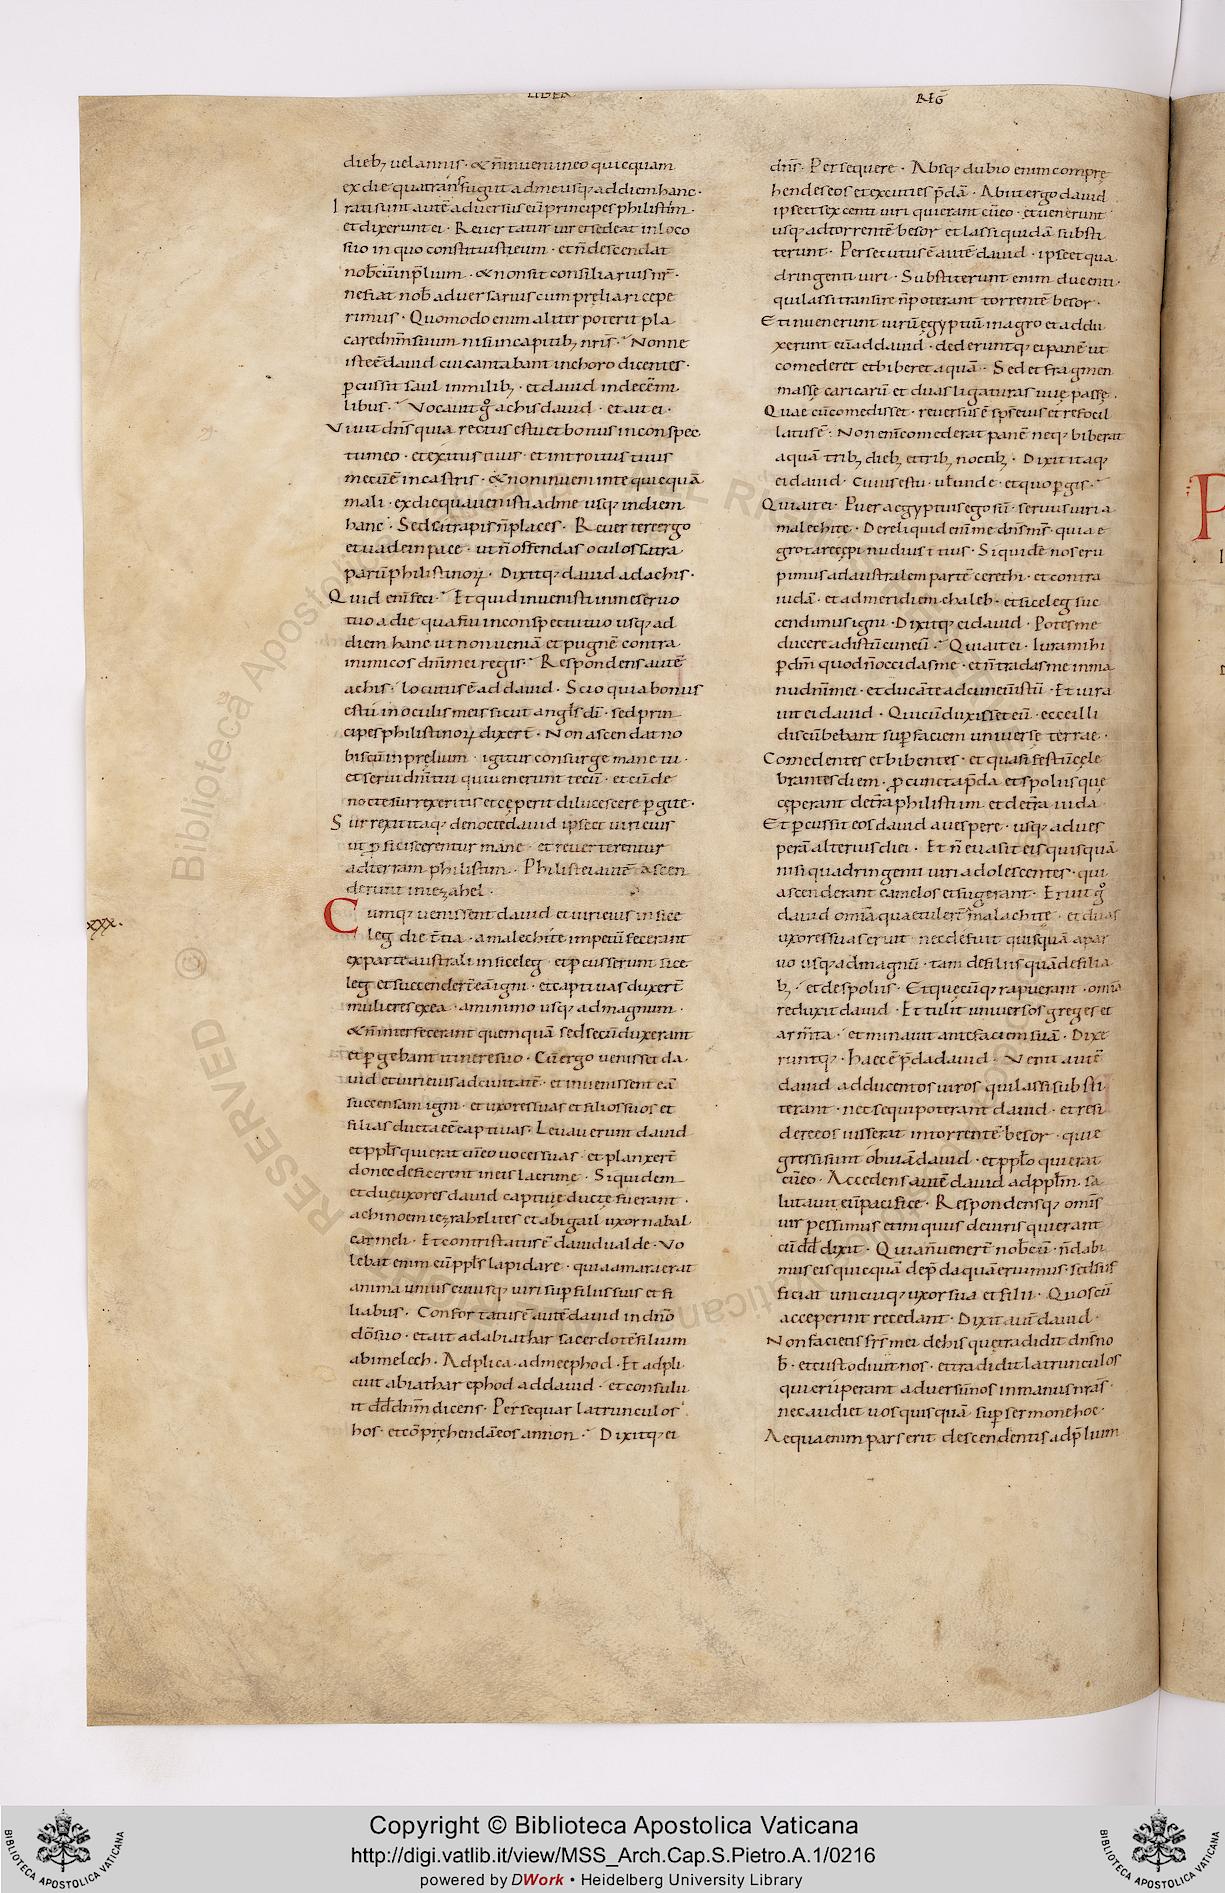 LIBER
REG̅
dieb; uel annis · & n̅ inueni in eo quicquam
ex die qua transfugit ad me usq; ad diem hanc ·
Irati sunt aute̅ aduersus eu̅ principes philistim ·
et dixerunt ei · Reuertatur uir et sedeat in loco
suo in quo constituisti eum · et n̅ descendat
nobiscu̅ in p̅lium · & non sit consiliarius nr̅ ·
ne fiat nob̅ aduersarius cum pręliari cępe
rimus · Quomodo enim aliter poterit pla
care dn̅m suum nisi in capitib; nr̅is · Nonne
iste e̅ dauid cui cantabant in choro dicentes ·
p̱cussit saul in milib; · et dauid in dece̅ mi
libus · Vocauit g̊ achis dauid · et ait ei ·
Viuit dn̅s quia rectus es tu et bonus in conspec
tu meo · et exitus tuus · et introitus tuus
mecu̅ e̅ in castris · & non inueni in te quicqua̅
mali · ex die qua uenisti ad me usq; in diem
hanc · Sed satrapis n̅ places · Reuertere ergo
et uade in pace · ut n̅ offendas oculos satra
paru̅ philistinoꝝ · Dixitq; dauid ad achis ·
Quid eni̅ feci · Et quid inuenisti in me seruo
tuo a die qua fui in conspectu tuo usq; ad
diem hanc ut non uenia̅ et pugne̅ contra
inimicos dn̅i mei regis · Respondens aute̅
achis · locutus e̅ ad dauid · Scio quia bonus
es tu in oculis meis sicut angl̅s di̅ · sed prin
cipes philistinoꝝ dixer̅t · Non ascendat no
biscu̅ in pręlium · igitur consurge mane tu ·
et serui dn̅i tui qui uenerunt tecu̅ · et cu̅ de
nocte surrexeritis et cęperit dilucescere p̱gite ·
Surrexit itaq; de nocte dauid ipse et uiri eius
ut p̱ficiscerentur mane · et reuerterentur
ad terram philistim · Philistei aute̅ ascen
derunt in iezrahel ·
xxx.
Cumq; uenissent dauid et uiri eius in sice
leg die t̅tia · amalechite impetu̅ fecerant
ex parte australi in siceleg · et p̱cusserunt sice
leg et succender̅t ea̅ igni · et captiuas duxer̅t
mulieres ex ea · a minimo usq; ad magnum ·
& n̅ interfecerant quemqua̅ sed secu̅ duxerant
et p̱gebant itinere suo · Cu̅ ergo uenisset da
uid et uiri eius ad ciuitate̅ · et inuenissent ea̅
succensam igni · et uxores suas et filios suos et
filias ductas e̅e captiuas · Leuauerunt dauid
et ppl̅s qui erat cu̅ eo uoces suas · et planxer̅t
donec deficerent in eis lacrime · Siquidem
et duę uxores dauid captiuę ductę fuerant ·
achinoem iezrahelites et abigail uxor nabal
carmeli · Et contristatus e̅ dauid ualde · Vo
lebat enim eu̅ ppl̅s lapidare · quia amara erat
anima unius cuiusq; uiri sup̱ filiis suis et fi
liabus · Confortatus e̅ aute̅ dauid in dn̅o
do̅ suo · et ait ad abiathar sacerdote̅ filium
abimelech · Adplica ad me ephod · Et adpli
cuit abiathar ephod ad dauid · et consulu
it dd̅ dn̅m dicens · Persequar latrunculos
hos · et co̅pręhenda̅ eos an non · Dixitq; ei
dn̅s · Persequere · Absq; dubio enim comprę
hendes eos et excuties p̅da̅ · Abiit ergo dauid
ipse et sexcenti uiri qui erant cu̅ eo · et uenerunt
usq; ad torrente̅ besor et lassi quida̅ substi
terunt · Persecutus e̅ aute̅ dauid · ipse et qua
dringenti uiri · Substiterunt enim ducenti ·
qui lassi transire n̅ poterant torrente̅ besor ·
Et inuenerunt uiru̅ ęgyptiu̅ in agro et addu
xerunt eu̅ ad dauid · dederuntq; ei pane̅ ut
comederet et biberet aqua̅ · Sed et fragmen
massę caricaru̅ et duas ligaturas uuę passę ·
Quae cu̅ comedisset · reuersus e̅ sps̅ eius et refocil
latus e̅ · Non eni̅ comederat pane̅ neq; biberat
aqua̅ trib; dieb; et trib; noctib; · Dixit itaq;
ei dauid · Cuius es tu · ul̅ unde · et quo p̱gis ·
Qui ait ei · Puer aegyptius ego su̅ · seruus uiri a
malechite · Dereliquid eni̅ me dn̅s ms̅ · quia e
grotare cępi nudius t̅tius · Siquide̅ nos eru
pimus ad australem parte̅ cerethi · et contra
iuda̅ · et ad meridiem chaleb · et siceleg suc
cendimus igni · Dixitq; ei dauid · Potes me
ducere ad istu̅ cuneu̅ · Qui ait ei · Iura mihi
p̱ dm̅ quod n̅ occidas me · et n̅ tradas me in ma
nu dn̅i mei · et duca̅ te ad cuneu̅ istu̅ · Et iura
uit ei dauid · Qui cu̅ duxisset eu̅ · ecce illi
discu̅bebant sup̱ faciem uniuersę terrae ·
Comedentes et bibentes · et quasi festu̅ cęle
brantes diem · p̱ cuncta p̅da et spoliis quę
cęperant de t̅ra philistiim et de t̅ra iuda ·
Et p̱cussit eos dauid a uespere · usq; ad ues
pera̅ alterius diei · Et n̅ euasit ex eis quisqua̅
nisi quadringenti uiri adolescentes · qui
ascenderant camelos et fugerant · Eruit g̊
dauid omi̅a quae tuler̅t malachitę · et duas
uxores suas eruit · nec defuit quisqua̅ a par
uo usq; ad magnu̅ · tam de filiis qua̅ de filia
b; · et de spoliis · Et quęcu̅q; rapuerant · omi̅a
reduxit dauid · Et tulit uniuersos greges et
arm̅ta · et minauit ante facie̅ sua̅ · Dixe
runtq; · haec e̅ p̅da dauid · Venit aute̅
dauid ad ducentos uiros qui lassi substi
terant · nec sequi poterant dauid · et resi
dere eos iusserat in torrente̅ besor · qui e
gressi sunt obuia̅ dauid · et ppl̅o qui erat
cu̅ eo · Accedens aute̅ dauid ad ppl̅m · sa
lutauit eu̅ pacifice · Respondensq; omi̅s
uir pessimus et iniquus de uiris qui erant
cu̅ dd̅ dixit · Quia n̅ uener̅t nobcu̅ · n̅ dabi
mus eis quicqua̅ de p̅da qua̅ eruimus · sed suf
ficiat unicuiq; uxor sua et filii · Quos cu̅
acceperint recedant · Dixit aut̅ dauid ·
Non facietis frs̅ mei de his quę tradidit dn̅s no
b̅ · et custodiuit nos · et tradidit latrunculos
qui eru̅perant aduersu̅ nos in manus nr̅as ·
nec audiet uos quisqua̅ sup̱ sermone hoc ·
Aequa enim pars erit descendentis ad p̅lium
Copyright © Biblioteca Apostolica Vaticana
http://digi.vatlib.it/view/MSS_Arch.Cap.S.Pietro.A.1/0216
powered by DWork • Heidelberg University Library